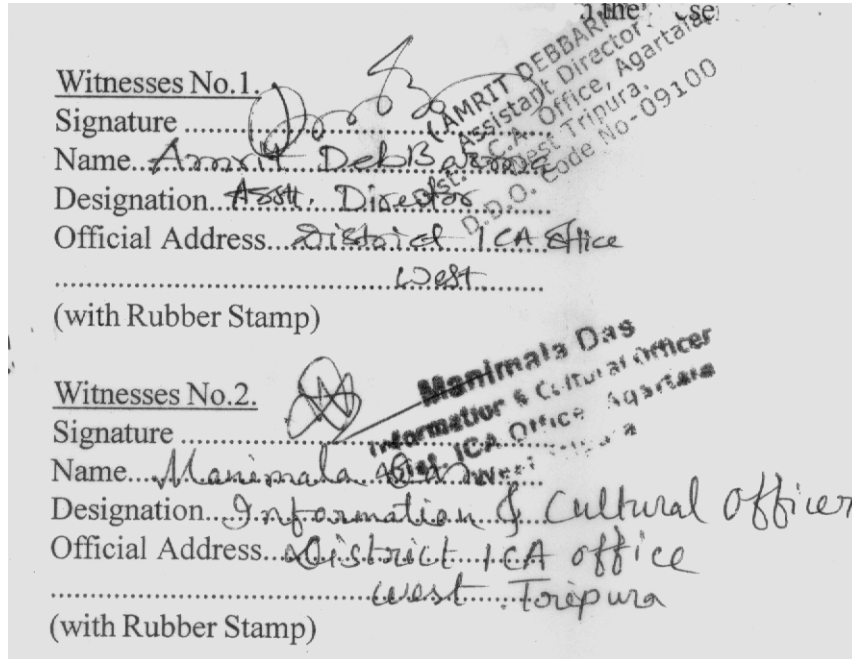 the
Witnesses No.1.
Signature
Name Amrit DebBarma
Designation Asstt. Director
Official Address District ICA Office
West
(with Rubber Stamp)
(AMRIT DEBBARMA
Assistant Director
Dist. I.C.A. Office, Agartala
West Tripura.
D.D.O. Code No-09100
Witnesses No.2.
Signature
Name Manimala Das
Designation Information & Cultural Officer
Official Address District ICA office
West Tripura
(with Rubber Stamp)
Manimala Das
Information & Cultural Officer
Dist. ICA Office Agartala
West Tripura